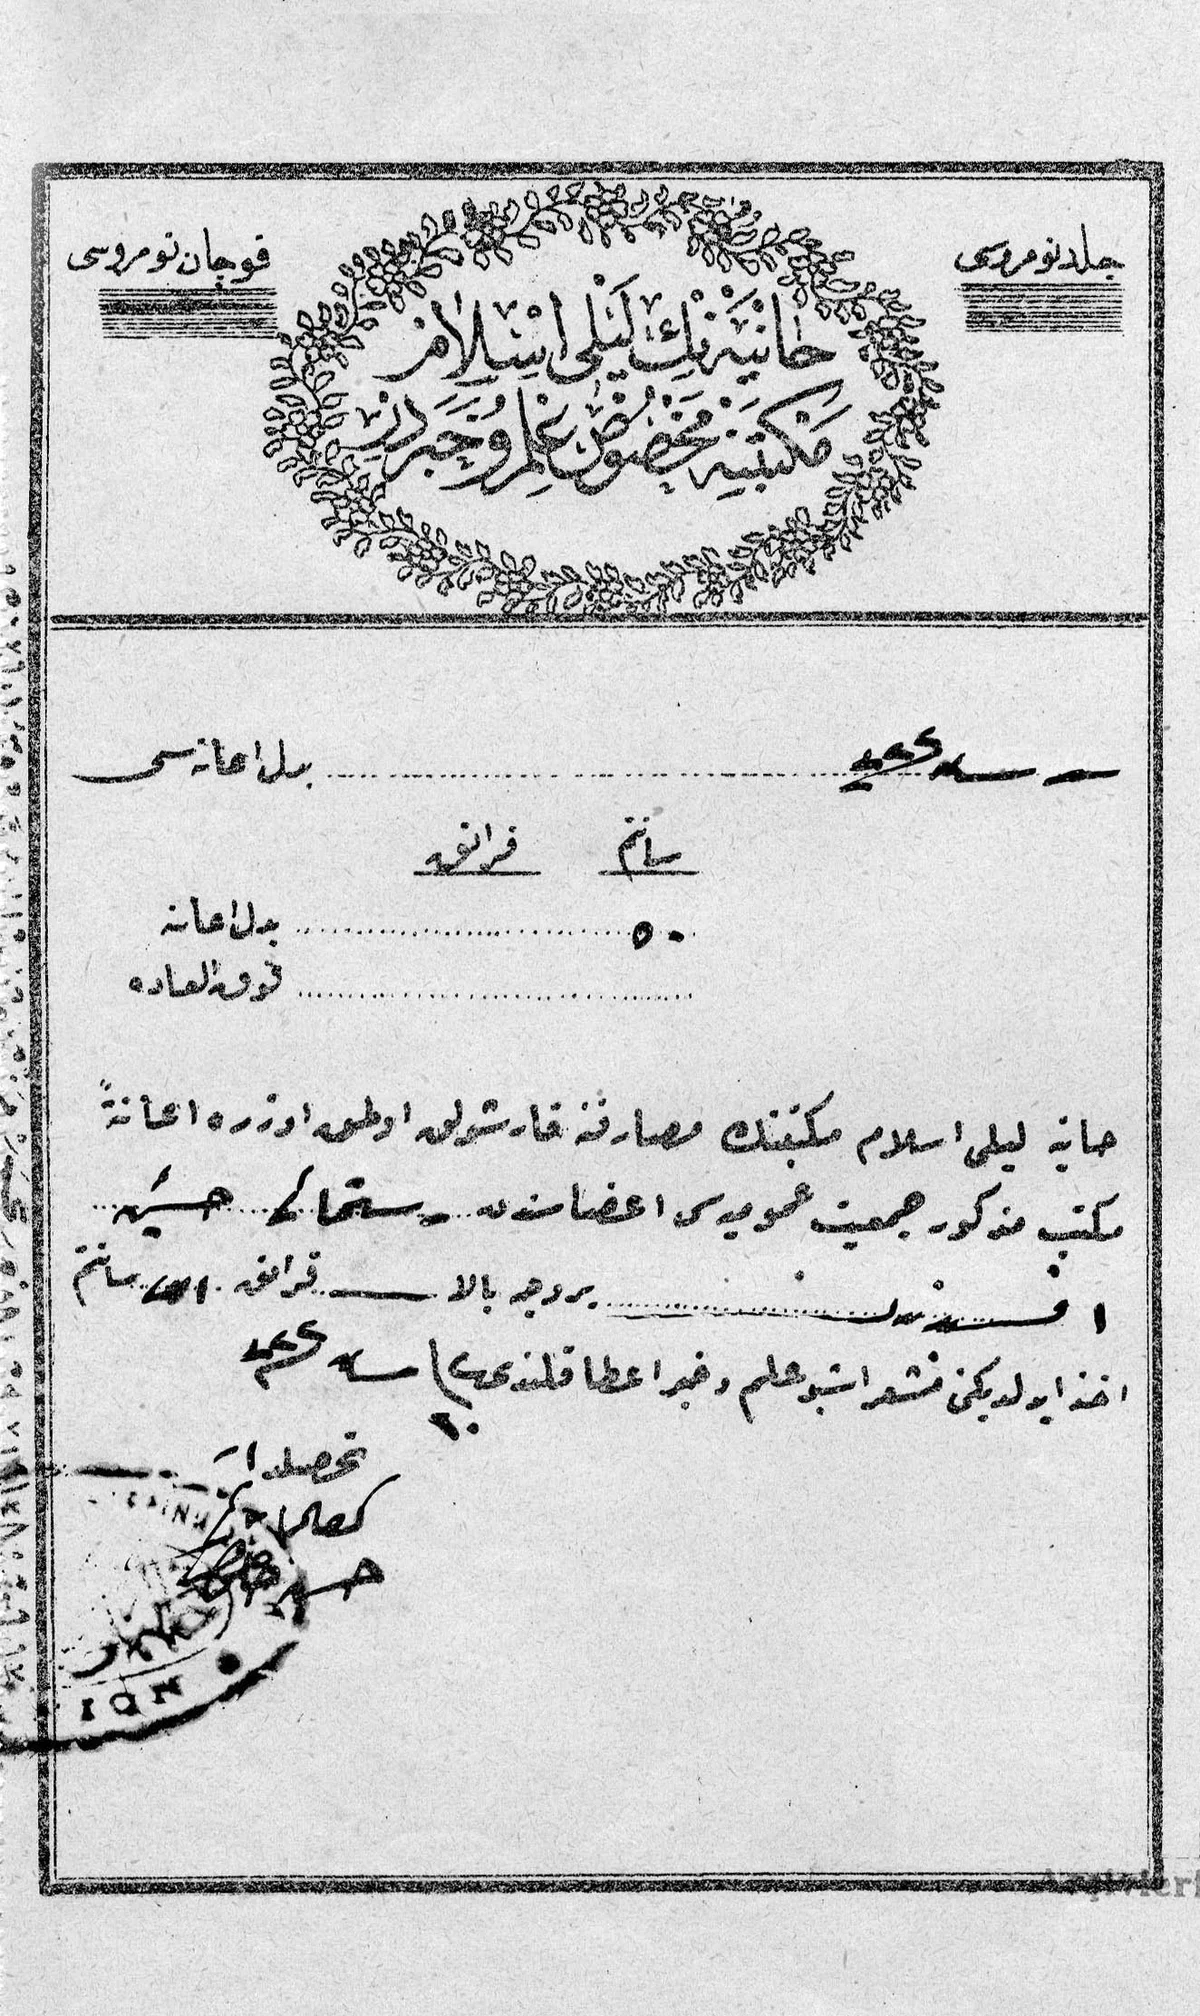 جلد نومروسی
قوچان نومروسی
حانیه نك لیلی اسلام
مكتبنه مخصوص علم و خبردر
سنه بدل اعانه سی
سانتم فرانق
٥٠ بدل اعانه
فوق العاده
حانیه لیلی اسلام مكتبنك مصارفنه قارشولق اولمق اوزره اعانةً
مكتب مذكور جمعیت عمومیه سی اعضاسندن حسین
افندیدن بروجه بالا فرانق سانتم
اخذ ایدلدیكنی مشعر اشبو علم و خبر اعطا قلندی سنه
تحصیلدار
ION